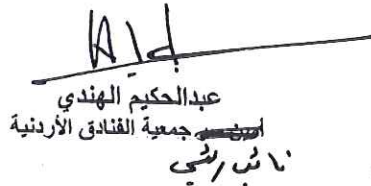 عبدالحكيم الهندي
جمعية الفنادق الأردنية
نائب رئيس